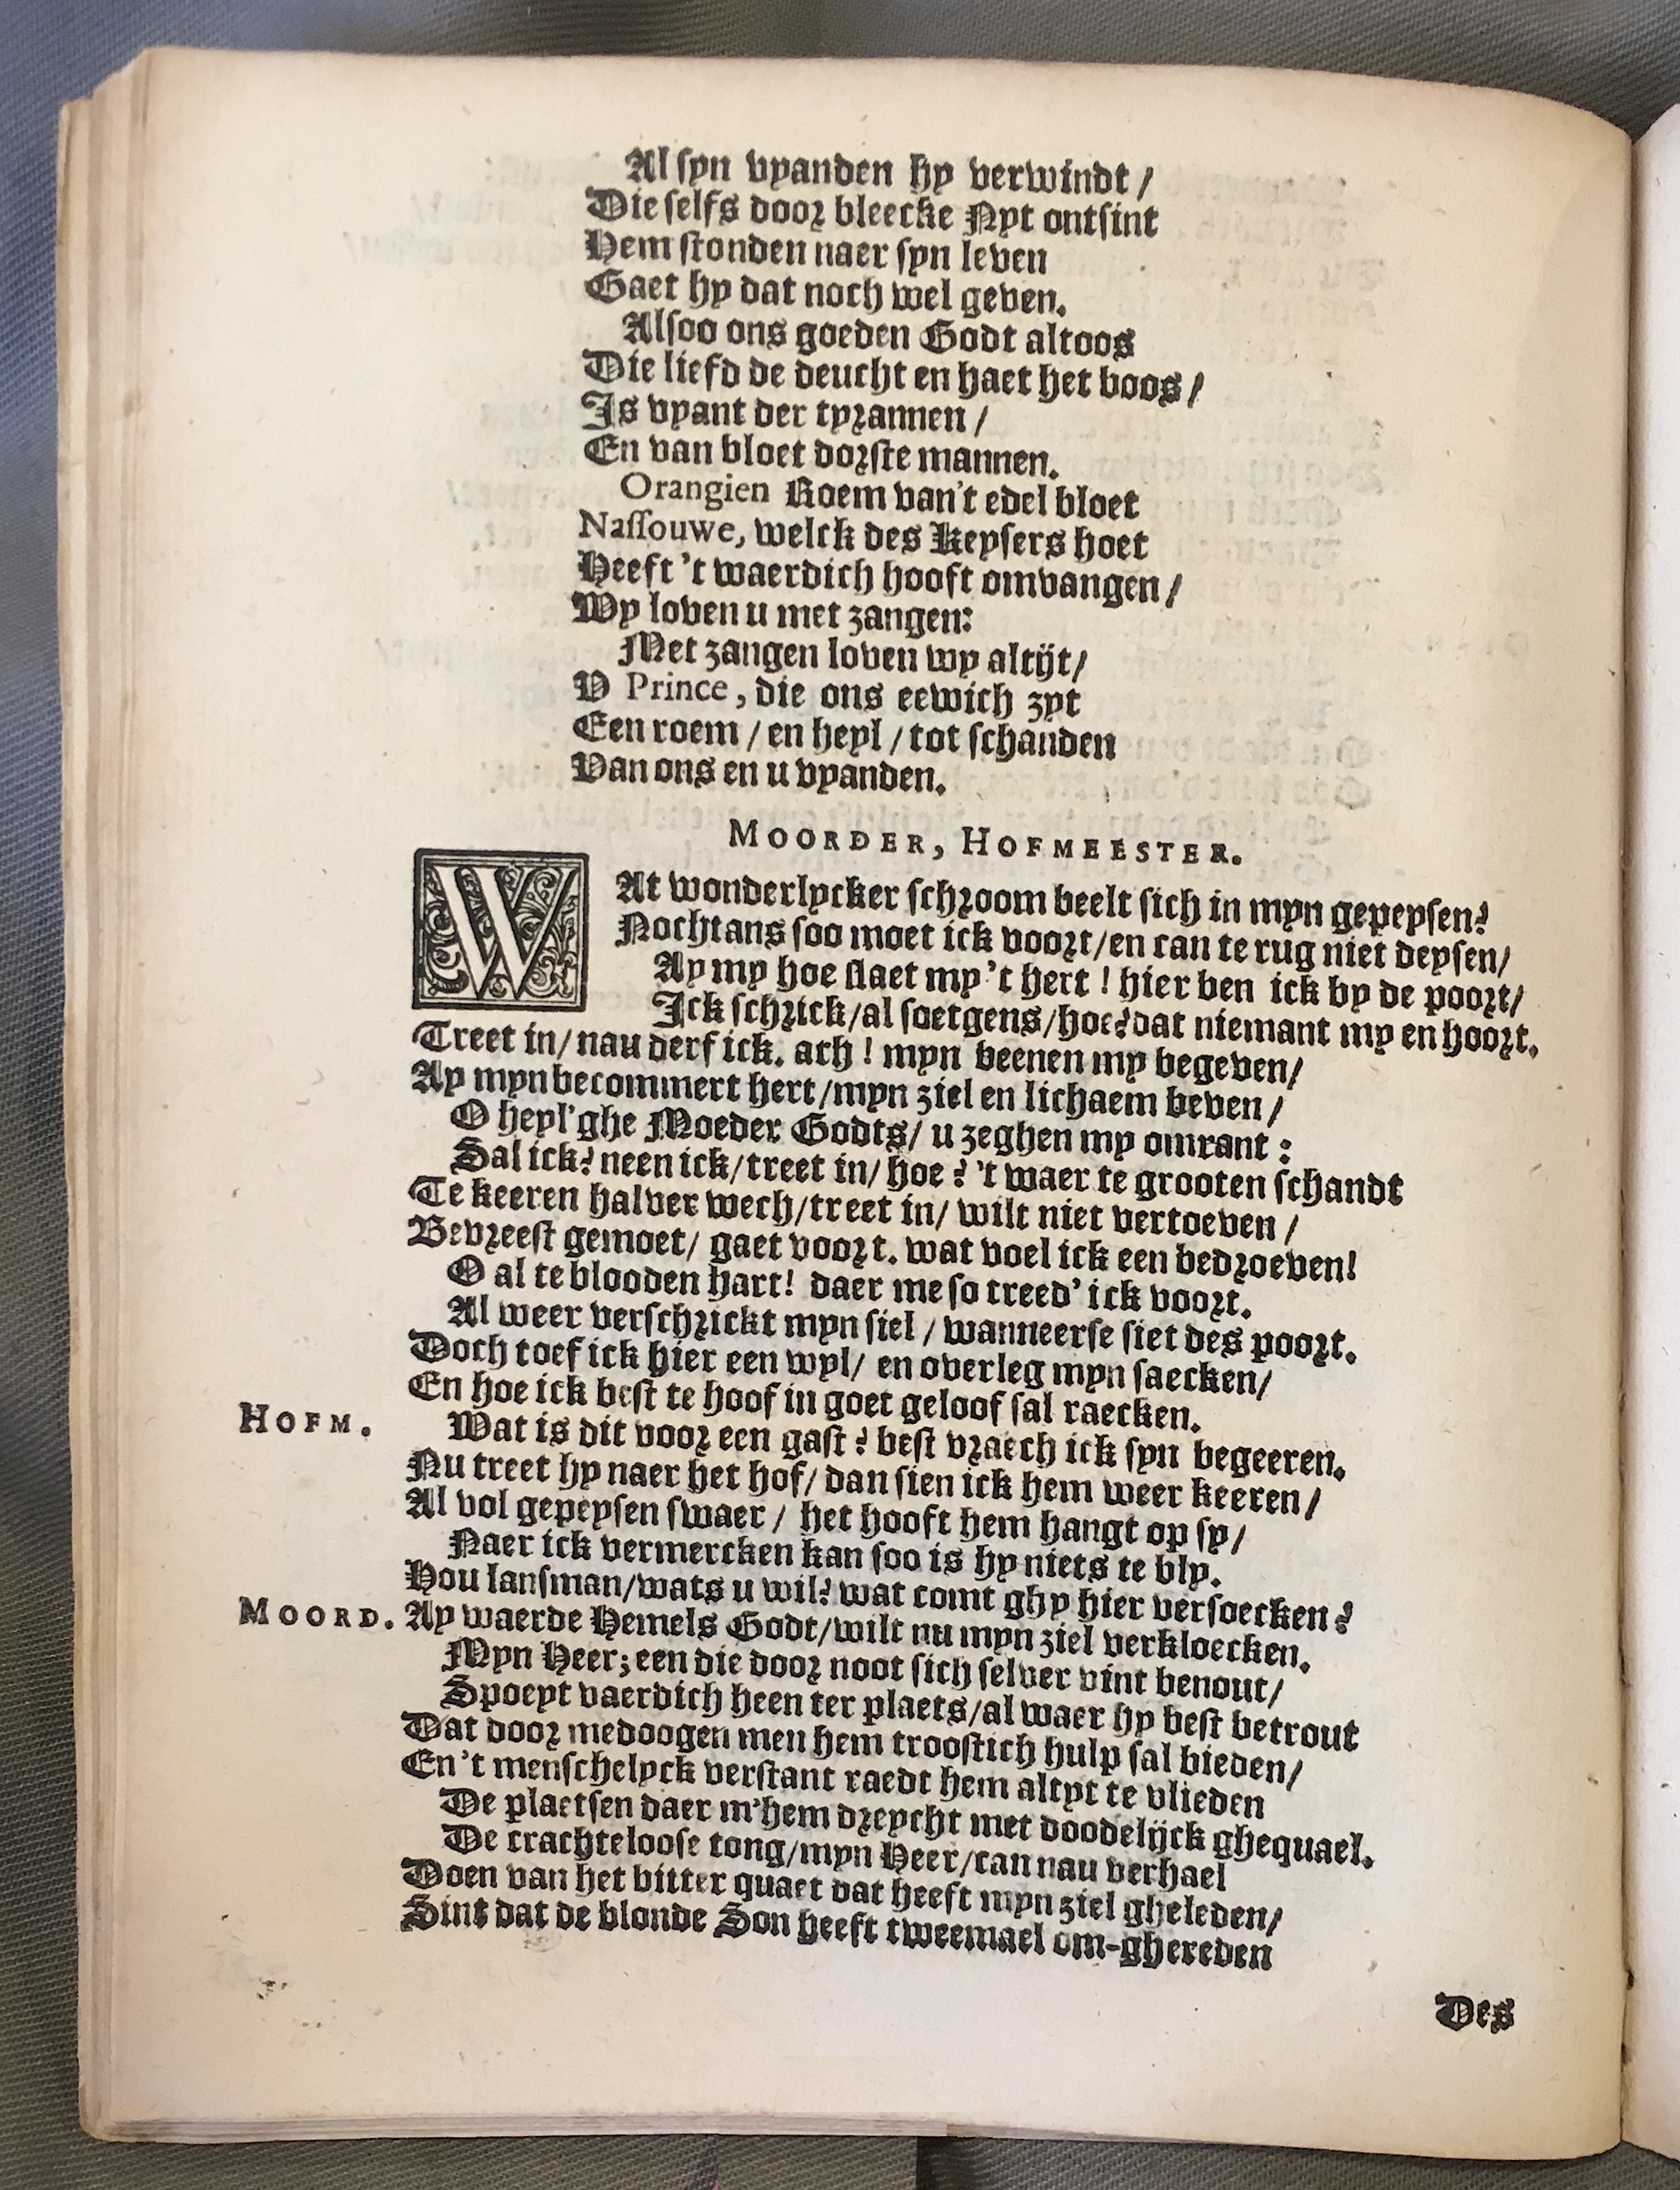 Al syn vyanden hy verwindt /
Die selfs door bleecke Nyt ontsint
Hem stonden naer syn leven
Gaet hy dat noch wel geven.
Alsoo ons goeden Godt altoos
Die liefd de deucht en haet het boos /
Is vyant der tyrannen /
En van bloet dorste mannen.
Orangien Roem van't edel bloet
Nassouwe, welck des Keysers hoet
Heeft 't waerdich hooft omvangen /
Wy loven u met zangen:
Met zangen loven wy altijt /
O Prince, die ons eewich zyt
Een roem / en heyl / tot schanden
Van ons en u vyanden.
MOORDER, HOFMEESTER.
WAt wonderlycker schroom beelt sich in myn gepeysen?
Nochtans soo moet ick voort / en can te rug niet deysen /
Ay my hoe slaet my 't hert ! hier ben ick by de poort /
Ick schrick / al soetgens / hoe? dat niemant my en hoort.
Treet in / nau derf ick. ach ! myn beenen my begeven /
Ay myn becommert hert / myn ziel en lichaem beven /
O heyl'ghe Moeder Godts / u zeghen my omrant :
Sal ick? neen ick / treet in / hoe? 't waer te grooten schandt
Te keeren halver wech / treet in / wilt niet vertoeven /
Bevreest gemoet / gaet voort. wat voel ick een bedroeven!
O al te blooden hart! daer me so treed' ick voort.
Al weer verschrickt myn siel / wanneerse siet des poort.
Doch toef ick hier een wyl / en overleg myn saecken /
En hoe ick best te hoof in goet geloof sal raecken.
HOFM. Wat is dit voor een gast? best vraech ick syn begeeren.
Nu treet hy naer het hof / dan sien ick hem weer keeren /
Al vol gepeysen swaer / het hooft hem hangt op sy /
Naer ick vermercken kan soo is hy niets te bly.
Hou lansman / wats u wil? wat comt ghy hier versoecken?
MOORD. Ay waerde Hemels Godt / wilt nu myn ziel verkloecken.
Myn Heer; een die door noot sich selver vint benout /
Spoeyt vaerdich heen ter plaets / al waer hy best betrout
Dat door medoogen men hem troostich hulp sal bieden /
En 't menschelyck verstant raedt hem altyt te vlieden
De plaetsen daer m'hem dreycht met doodelijck ghequael.
De crachteloose tong / myn Heer / can nau verhael
Doen van het bitter quaet dat heeft myn ziel gheleden /
Sint dat de blonde Son heeft tweemael om-ghereden
Des